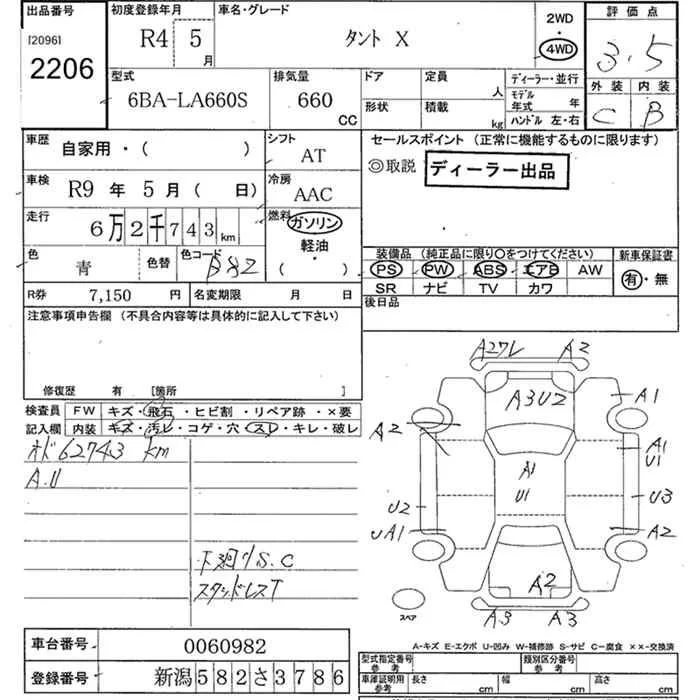 出品番号
[2096]
2206
初度登録年月
R4 5 月
車名・グレード
タント X
2WD
・
4WD
評価点
3.5
外装 内装
C B
型式
6BA-LA660S
排気量
660 CC
ドア 定員 人
形状 積載 kg
ディーラー・並行
モデル年式 年
ハンドル 左・右
車歴
自家用・( )
シフト
AT
車検
R9 年 5 月 ( 日)
冷房
AAC
走行
6万2千743 km
燃料
ガソリン
軽油・
( )
色
青
色替
色コード
B82
R券 7,150 円
名変期限 月 日
セールスポイント (正常に機能するものに限ります)
◎取説 ディーラー出品
装備品 (純正品に限り○をつけてください)
PS PW ABS エアB AW
SR ナビ TV カワ
新車保証書
有・無
後日品
注意事項申告欄 (不具合内容等は具体的に記入して下さい)
修復歴 有 [箇所 ]
検査員 FW キズ・飛石・ヒビ割・リペア跡・×要
記入欄 内装 キズ・汚レ・コゲ・穴・スレ・キレ・破レ
オド62743 km
A.U
下廻りS.C
スタッドレスT
A27レ A2
A3U2
A1
A2
A1
U1
A1
U1
U2
U3
UA1
A2
A2
A3 A3
スペア
A-キズ E-エクボ U-凹み W-補修跡 S-サビ C-腐食 ××-交換済
車台番号 0060982
登録番号 新潟582さ3786
型式指定番号 参考
類別区分番号 参考
車庫証明用 参考
長さ cm 幅 cm 高さ cm